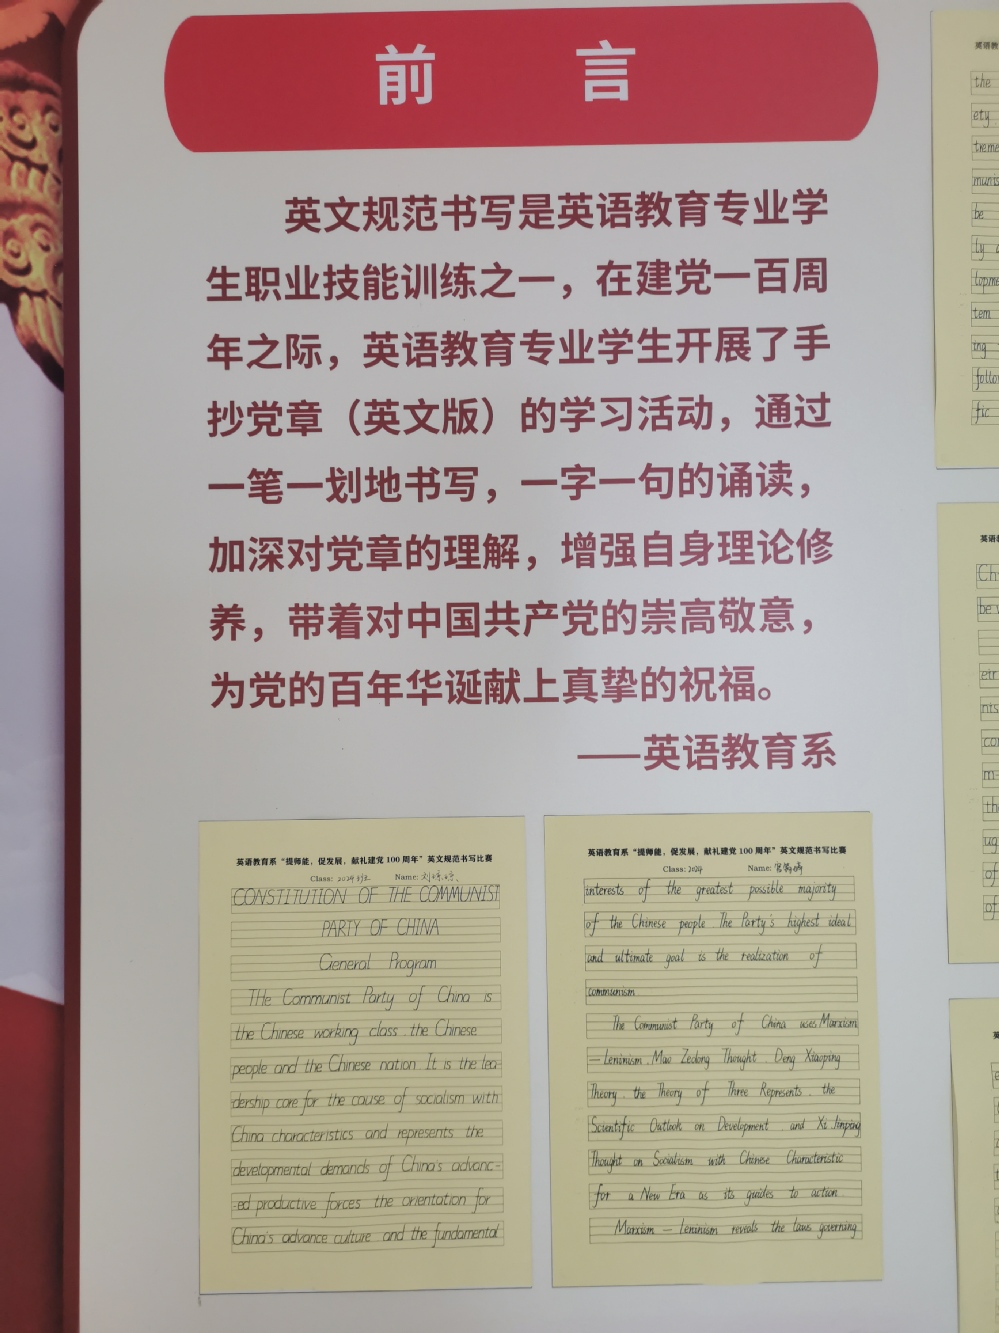 前言
英文规范书写是英语教育专业学
生职业技能训练之一，在建党一百周
年之际，英语教育专业学生开展了手
抄党章（英文版）的学习活动，通过
一笔一划地书写，一字一句的诵读，
加深对党章的理解，增强自身理论修
养，带着对中国共产党的崇高敬意，
为党的百年华诞献上真挚的祝福。
——英语教育系
英语教育系“提师能，促发展，献礼建党 100 周年”英文规范书写比赛
Class: Name:
CONSTITUTION OF THE COMMUNIST
PARTY OF CHINA
General Program
THe Communist Party of China is
the Chinese working class. the Chinese
people and the Chinese nation It is the lea-
dership core for the cause of socialism with
China characteristics and represents the
developmental demands of China's advanc-
-ed productive forces the orientation for
China's advance culture and the fundamental
英语教育系“提师能，促发展，献礼建党 100 周年”英文规范书写比赛
Class: Name:
interests of the greatest possible majority
of the Chinese people The Party's highest ideal
and ultimate goal is the realization of
communism
The Communist Party of China uses Marxism
— Leninism. Mao Zedong Thought. Deng Xiaoping
Theory. the Theory of Three Represents. the
Scientific Outlook on Development and Xi Jinping
Thought on Socialism with Chinese Characteristic
for a New Era as its guides to action.
Marxism — Leninism reveals the laws governing
英语教
the
ety
treme
munis
be
ly
lopme
tem
ing
follo
fic
英语教
Ch
be
eir
nis
con
m-
th
ug
of
of